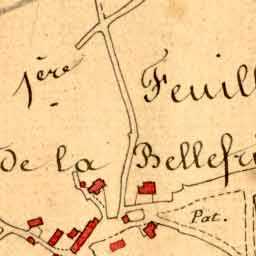 1ère Feuill
De la Bellefri
Pat.